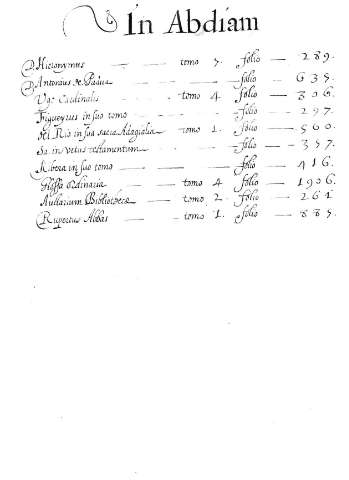 In Abdiam
D. Hieronymus — tomo 5. folio — 289.
D. Antonius de Padua — folio — 635.
Vgo Cardinalis — tomo 4. folio — 306.
Figueyrus in suo tomo — folio — 297.
del Rio in sua sacra Adagialia — tomo 1. folio — 560.
Sa in vetus testamentum — folio — 357.
Ribera in suo tomo — folio — 416.
Glossa Ordinaria — tomo 4 folio — 1906.
Auctarium Bibliothecæ — tomo 2. folio — 262
Rupertus Abbas — tomo 1. folio — 885.